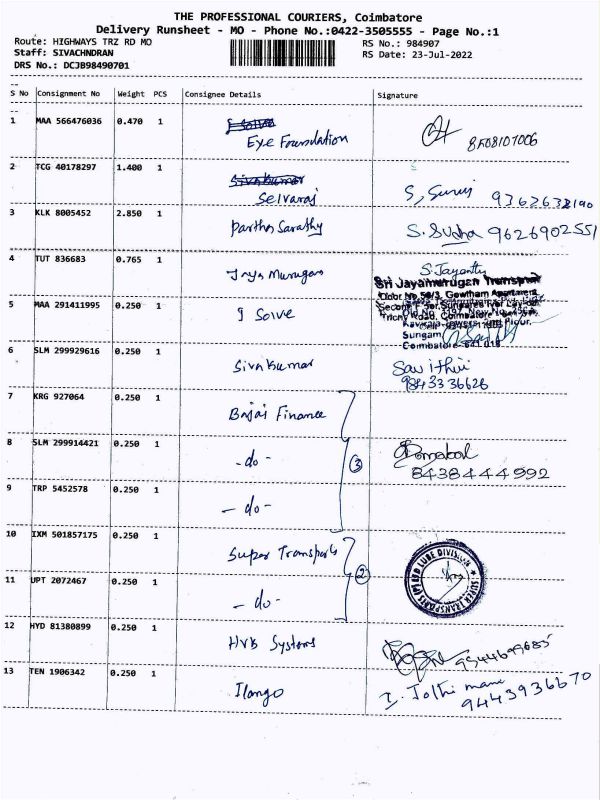 THE PROFESSIONAL COURIERS, Coimbatore
Delivery Runsheet - MO - Phone No.:0422-3505555 - Page No.:1
Route: HIGHWAYS TRZ RD MO
RS No.: 984907
Staff: SIVACHNDRAN
RS Date: 23-Jul-2022
DRS No.: DCJB98490701
S No Consignment No Weight PCS Consignee Details Signature
1 MAA 566476036 0.470 1 Eye Foundation 8508107006
2 TCG 40178297 1.400 1 Sivakumar
Selvaraj 9362632190
3 KLK 8005452 2.850 1 Partha Sarathy S. Sudha 9626902551
4 TUT 836683 0.765 1 Jaya Murugan S. Jayanthi
Sri Jayamurugan Transport
Door No.56/3, Gowtham Apartment
5 MAA 291411995 0.250 1 I Solve
Sungam
Coimbatore - 641 018
6 SLM 299929616 0.250 1 Sivakumar Savithiri
9843336626
7 KRG 927064 0.250 1 Bajaj Finance
8 SLM 299914421 0.250 1 - do - 3
8438444992
9 TRP 5452578 0.250 1 - do -
10 IXM 501857175 0.250 1 Super Transports
SUPER TRANSPORTS (P) LTD LUBE DIVISION
11 UPT 2072467 0.250 1 - do - 2
12 HYD 81380899 0.250 1 HVB Systems 9944699685
13 TEN 1906342 0.250 1 Ilango I. Jothi mani
9443936670